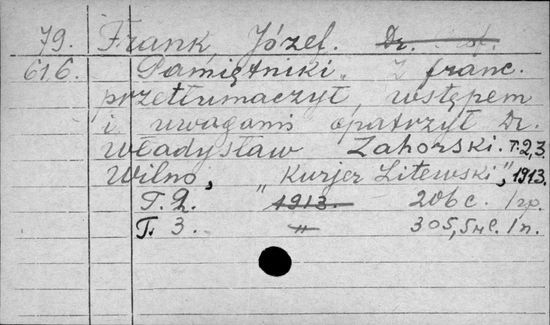 79. Frank, Józef. Dr.
616. Pamiętniki. Z franc.
przetłumaczył, wstępem
i uwagami opatrzył Dr.
Władysław Zahorski. T. 2, 3.
Wilno, „Kurjer Litewski”, 1913.
T. 2. 1913. 206 с. 1 гр.
T. 3. " 305, 5 нс. 1 п.